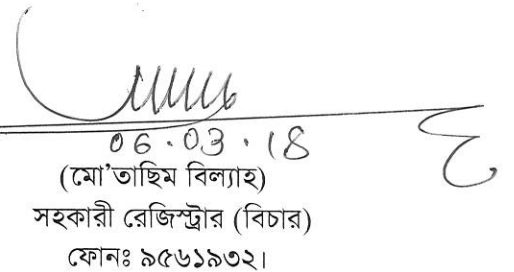 06.03.18
(মো'তাছিম বিল্যাহ)
সহকারী রেজিস্ট্রার (বিচার)
ফোনঃ ৯৫৬১৯৩২।